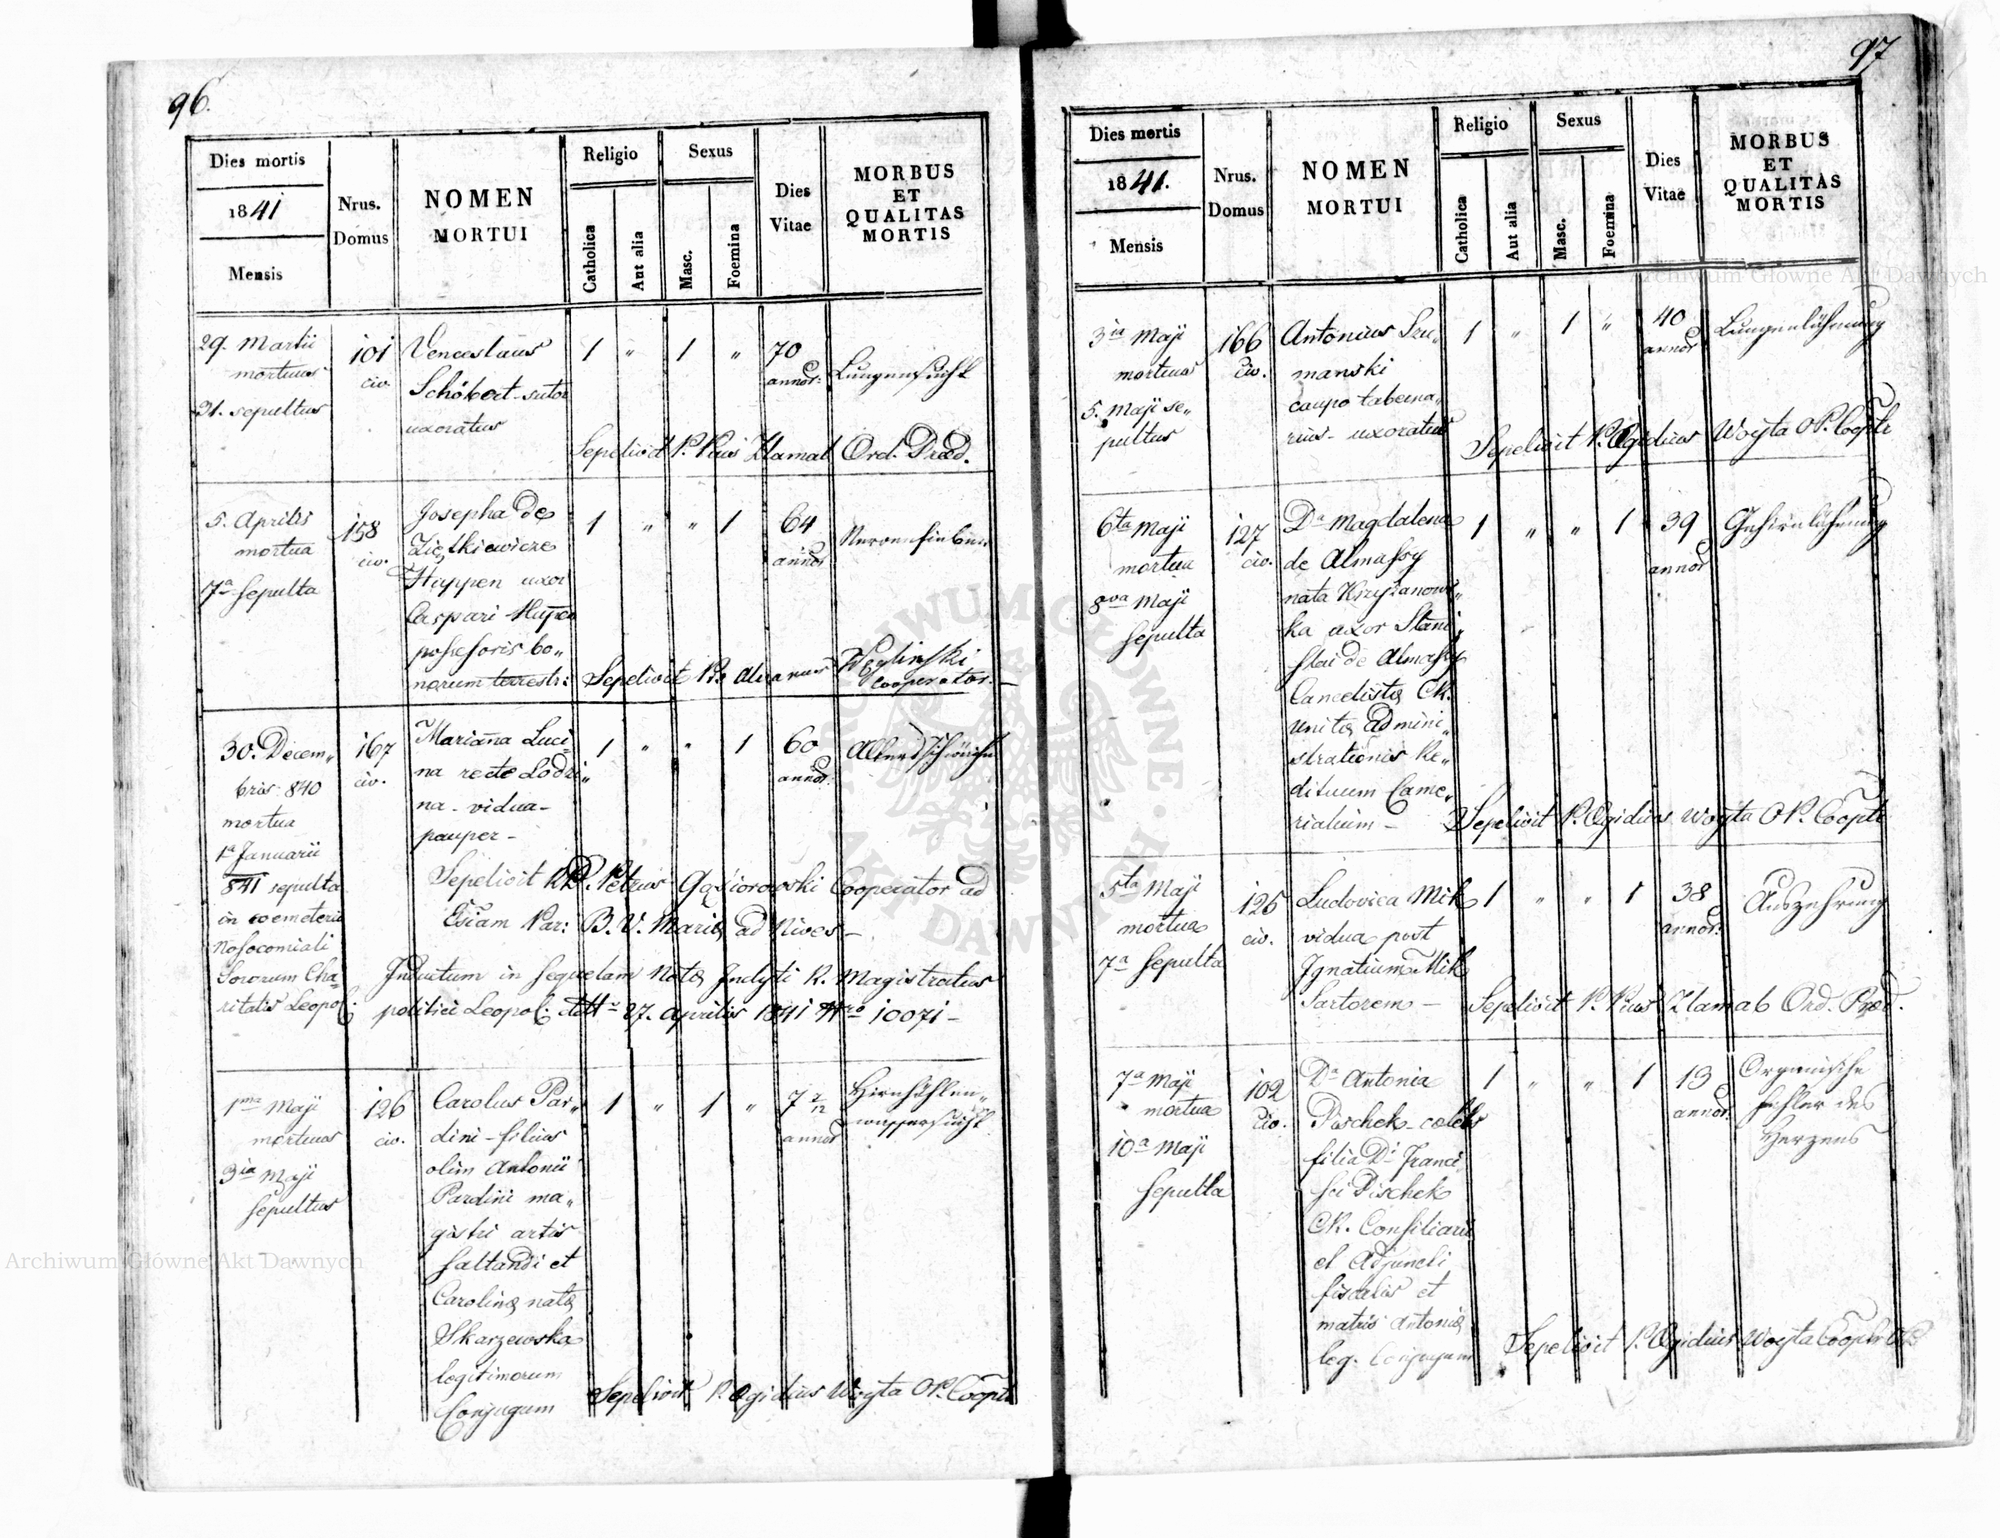 96.
Dies mortis
1841
Mensis
Nrus.
Domus
NOMEN
MORTUI
Religio
Catholica
Aut alia
Sexus
Masc.
Foemina
Dies
Vitae
MORBUS
ET
QUALITAS
MORTIS
29. Martii
mortuus
31. sepultus
101
civ.
Venceslaus
Schöbert sutor
uxoratus
1 " 1 "
70
annor:
Lungensucht
Sepelivit P. Pius Zlamal Ord. Præd.
5. Aprilis
mortua
7a sepulta
158
civ.
Josepha de
Ziętkiewicze
Huppen uxor
Caspari Huppen
possessoris bo„
norum terrestr:
1 " " 1
64
annor
Nervenfieber
Sepelivit
Cooperator.
30. Decem„
bris 840
mortua
1a Januarii
841 sepulta
in coemeterio
Nosocomiali
Sororum Cha„
ritatis Leopol:
167
civ.
Marianna Luci„
na recte Lodzi„
na - vidua -
pauper -
1 " " 1
60
annor.
Altersschwäche
Sepelivit RP. Petrus Gąsiorowski Cooperator ad
Eccl̃iam Par: B. V. Mariæ ad Nives -
Inductum in sequelam Notæ Inclyti R. Magistratus
politici Leopol: ddtt 27. Aprilis 1841 Nro 10071 -
1ma Maji
mortuus
3ia Maji
sepultus
126
civ.
Carolus Par„
dini - filius
olim Antonii
Pardini ma„
gistri artis
saltandi et
Carolinæ natæ
Skarzewska
legitimorum
Conjugum
1 " 1 "
7 2/12
annor
Hirnhöhlen„
wassersucht
Sepelivit P. Ægidius Woyta OP. Cooptr
97
Dies mortis
1841.
Mensis
Nrus.
Domus
NOMEN
MORTUI
Religio
Catholica
Aut alia
Sexus
Masc.
Foemina
Dies
Vitae
MORBUS
ET
QUALITAS
MORTIS
3ia Maji
mortuus
5. Maji se„
pultus
166
civ.
Antonius Szu„
manski
caupo taberna„
rius - uxoratus
1 " 1 "
40
annor
Lungenlähmung
Sepelivit P. Ægidius Woyta OP. Cooptr
6ta Maji
mortua
8va Maji
sepulta
127
civ.
Da Magdalena
de Almassy
nata Krzyżanow„
ska uxor Stani„
slai de Almassy
Cancelistæ CR.
unitæ admini„
strationis Re„
dituum Came„
ralium -
1 " " 1
39
annor
Gehirnlähmung
Sepelivit P. Ægidius Woyta OP. Cooptr
5ta Maji
mortua
7a sepulta
125
civ.
Ludovica Mik
vidua post
Ignatium Mik
Sartorem -
1 " " 1
38
annor.
Auszehrung
Sepelivit P. Pius Zlamal Ord. Præd.
7a Maji
mortua
10a Maji
sepulta
102
civ.
Da Antonia
Pischek cælebs
filia Di Franci„
sci Pischek
CR. Consiliarii
et Adjuncti
fiscalis et
matris Antoniæ
leg. Conjugum
1 " " 1
13
annor.
Organische
Fehler des
Herzens
Sepelivit P. Ægidius Woyta Cooptr OP
Archiwum Główne Akt Dawnych
Archiwum Główne Akt Dawnych
ARCHIWUM GŁÓWNE AKT DAWNYCH